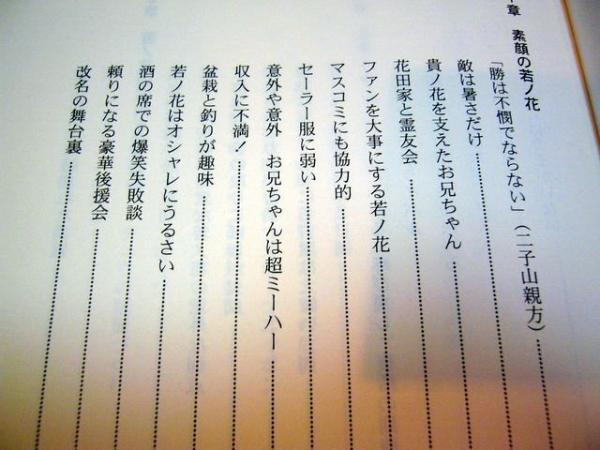 章 素顔の若ノ花
「勝は不憫でならない」(二子山親方)
敵は暑さだけ
貴ノ花を支えたお兄ちゃん
花田家と霊友会
ファンを大事にする若ノ花
マスコミにも協力的
セーラー服に弱い
意外や意外 お兄ちゃんは超ミーハー
収入に不満!
盆栽と釣りが趣味
若ノ花はオシャレにうるさい
酒の席での爆笑失敗談
頼りになる豪華後援会
改名の舞台裏